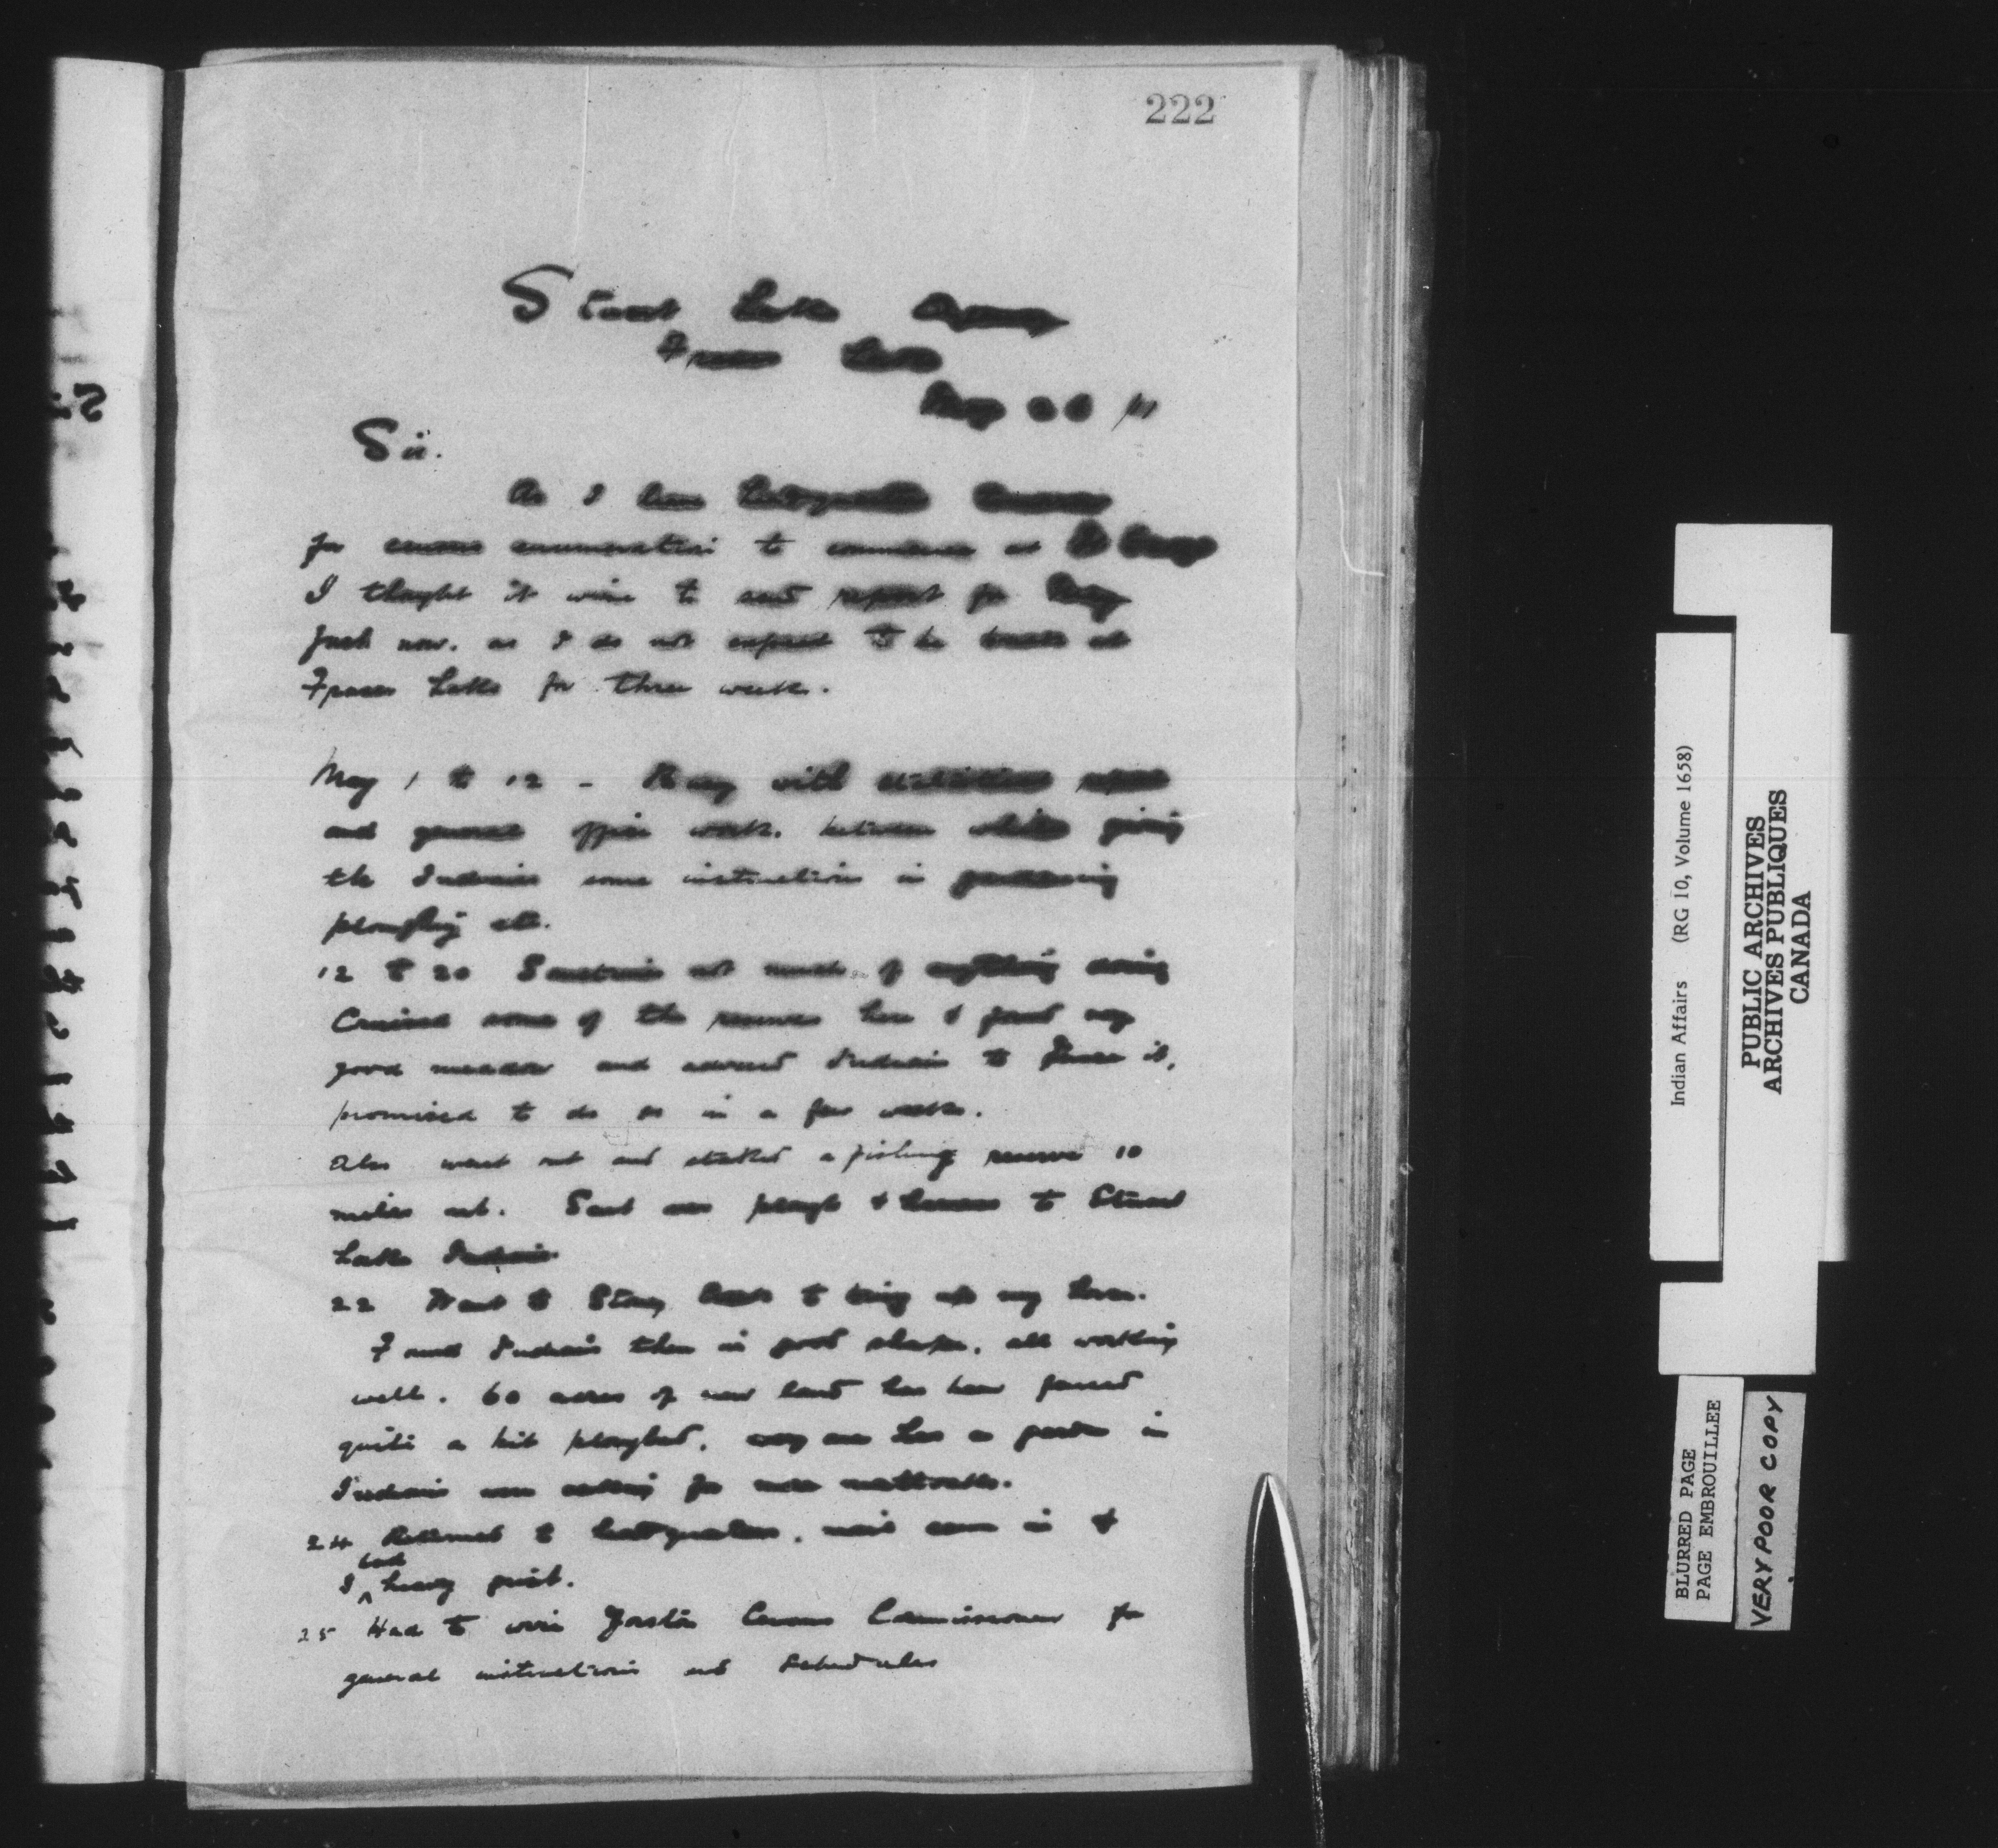 222
Stuart Lake Agency
Fraser Lake
May 26 /11
Sir.
As I leave headquarters tomorrow
for census enumeration to commence at
I thought it wise to send report for May
just now. as I do not expect to be back at
Fraser Lake for three weeks.
May 1 to 12 - Busy with statistical report
and general office work. between whiles giving
the Indians some instruction in gardening
ploughing etc.
12 to 20 not much of anything doing
Cruised some of the reserve here & found
good meadow and advised Indians to fence it,
promised to do so in a few weeks.
Also went out and staked a fishing reserve 10
miles out. Sent one plough & harness to Stuart
Lake Indians.
22 Went to Stony Creek to bring up my horse.
Found Indians there in good shape. all working
well. 60 acres of new land has been fenced
quite a bit ploughed, has a garden in
Indians were asking for more mattocks.
24 Returned to headquarters. mail came in &
I had heavy
25 Had to wire Census Commissioner for
general instructions and schedules
Indian Affairs (RG 10, Volume 1658)
PUBLIC ARCHIVES
ARCHIVES PUBLIQUES
CANADA
BLURRED PAGE
PAGE EMBROUILLEE
VERY POOR COPY